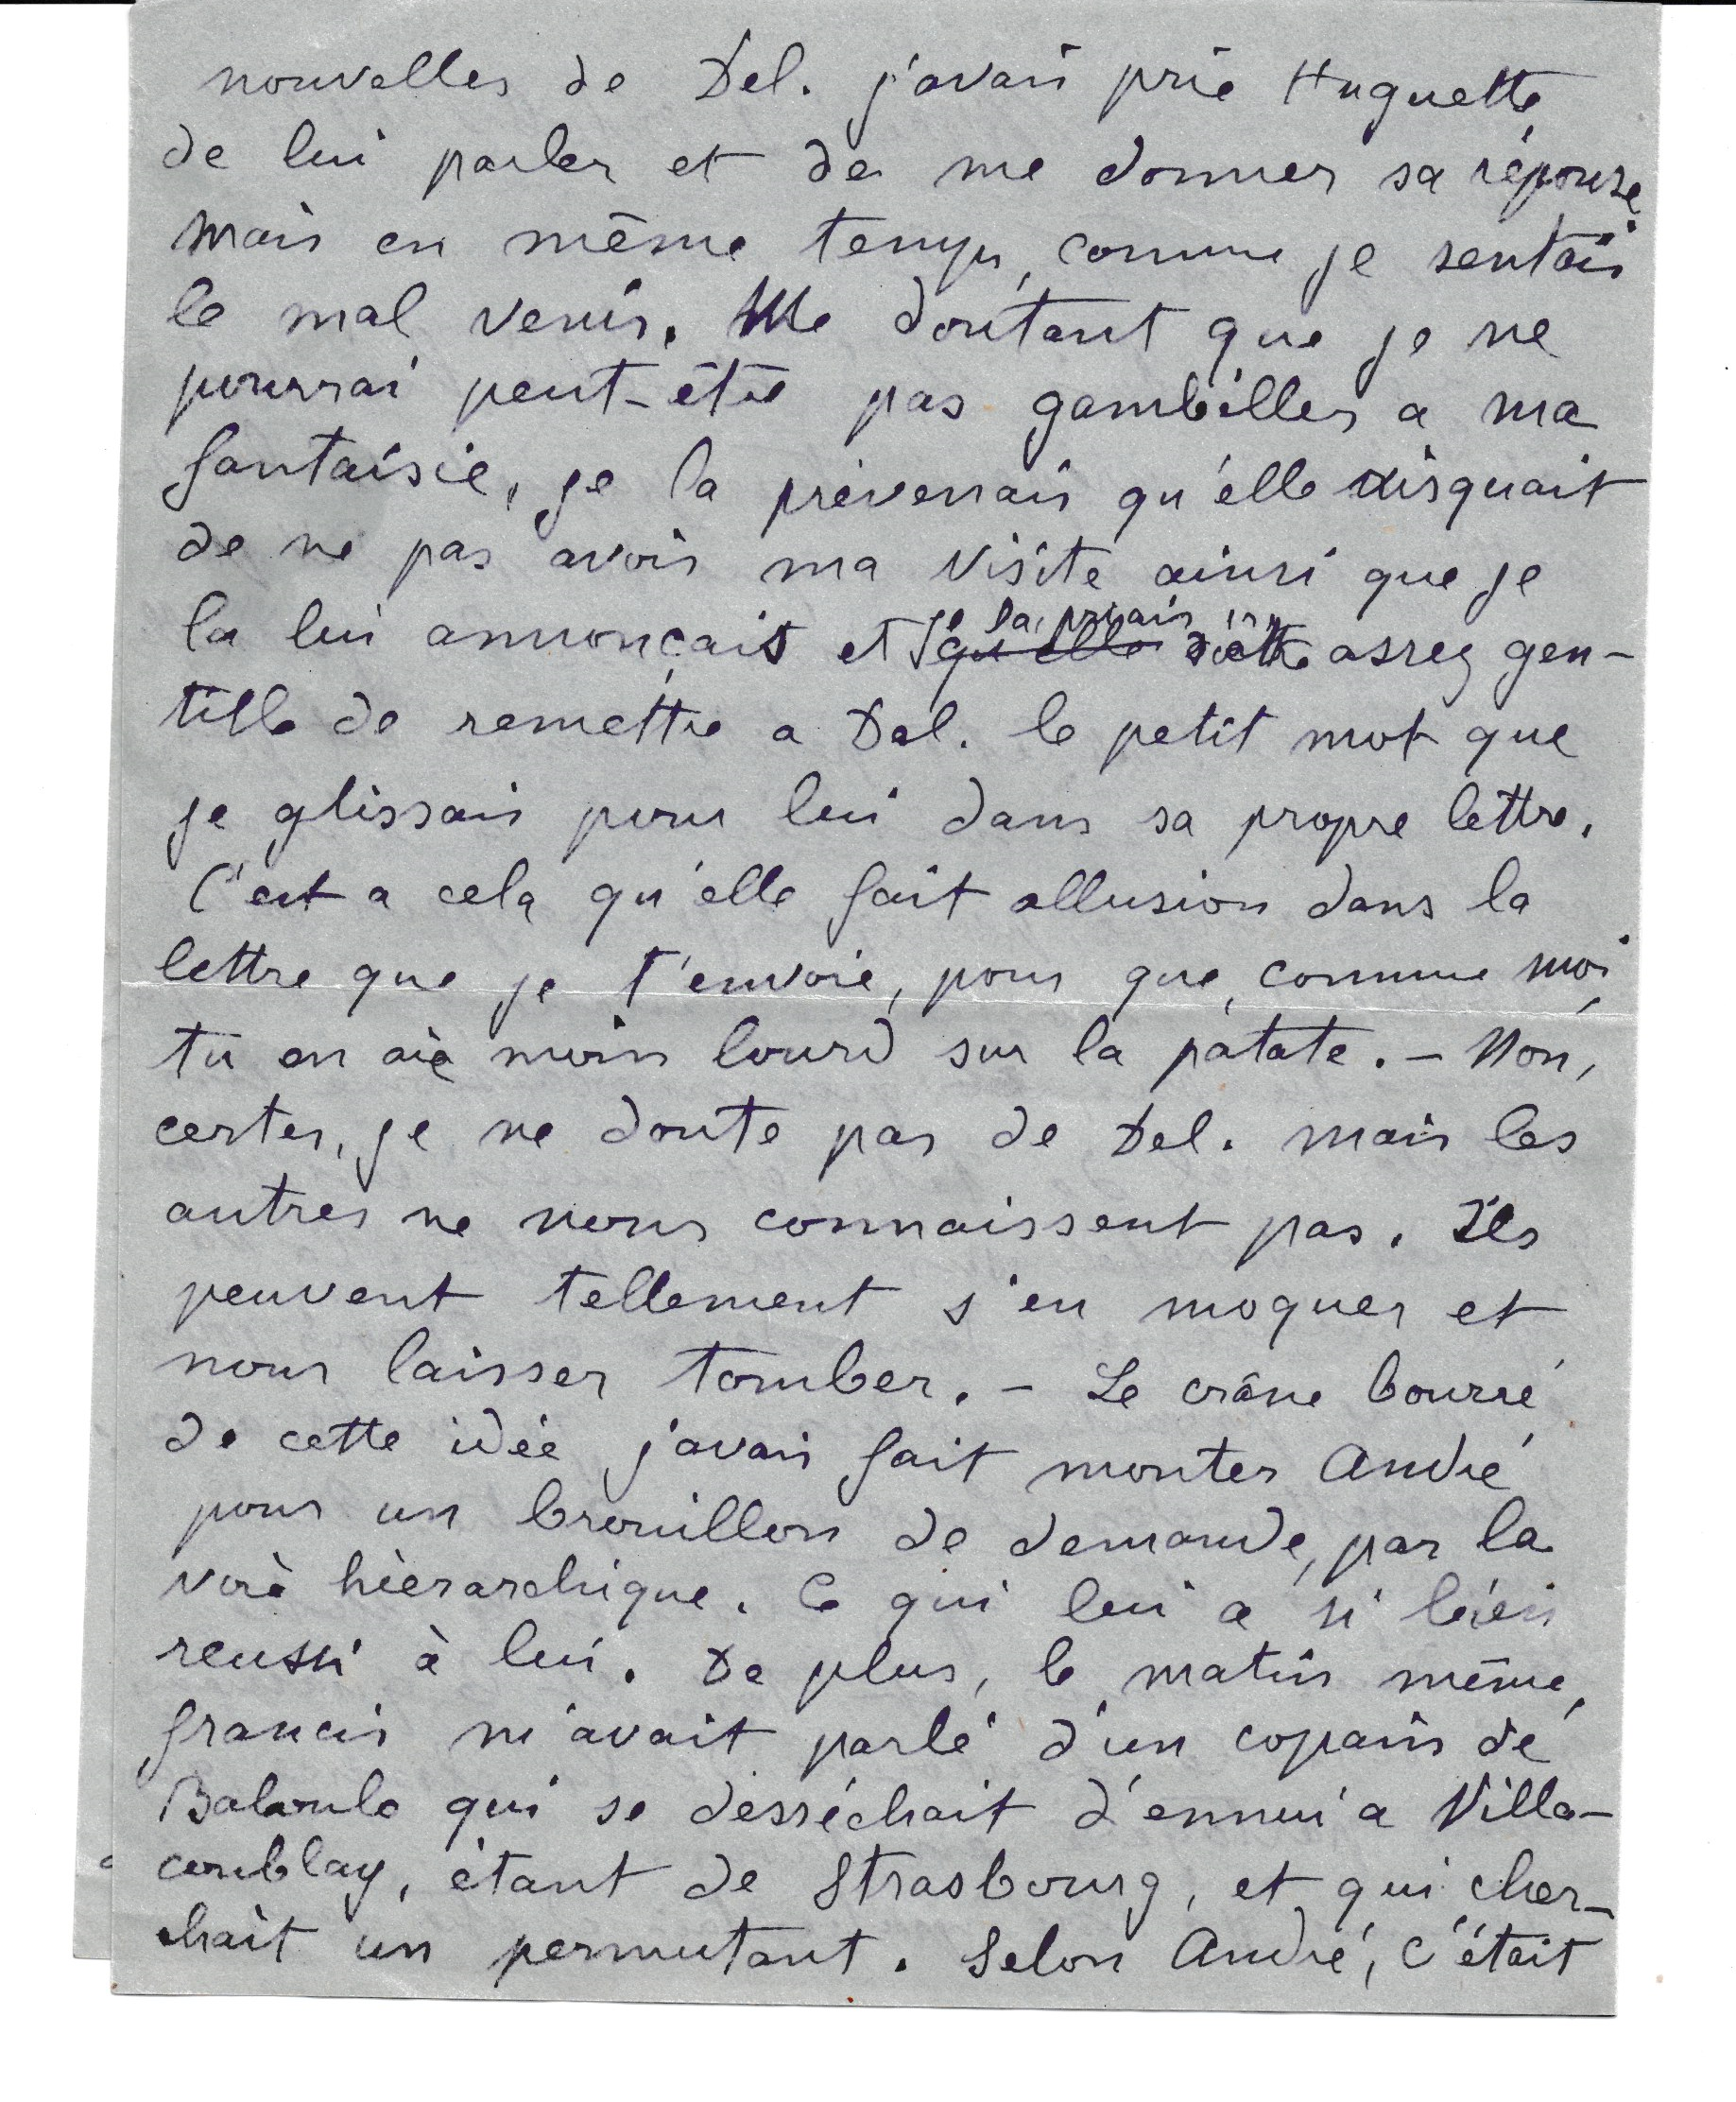 nouvelles de Del. j'avais prié Huguette
de lui parler et de me donner sa réponse.
Mais en même temps, comme je sentais
le mal venir. Me doutant que je ne
pourrai peut-être pas gambiller a ma
fantaisie, je la prévenais qu'elle risquait
de ne pas avoir ma visite ainsi que je
la lui annonçais et je la priais qu'elle d'être assez gen-
tille de remettre a Del. le petit mot que
je glissais pour lui dans sa propre lettre.
C'est a cela qu'elle fait allusion dans la
lettre que je t'envoie, pour que, comme moi,
tu en aie moins lourd sur la patate. - Non,
certes, je ne doute pas de Del. mais les
autres ne nous connaissent pas. Ils
peuvent tellement s'en moquer et
nous laisser tomber. - Le crâne bourré
de cette idée j'avais fait monter André
pour un brouillon de demande, par la
voie hièrarchique. Ce qui lui a si bien
reussi à lui. De plus, le matin même,
francis m'avait parlé d'un copain de
qui se desséchait d'ennui a Villa-
coublay, étant de Strasbourg, et qui cher-
chait un permutant. Selon André, c'était